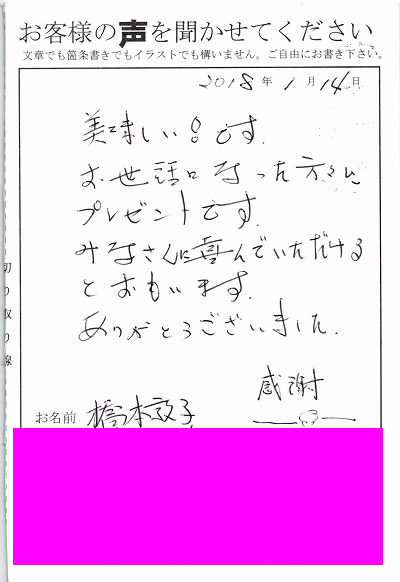 お客様の声を聞かせてください
文章でも箇条書きでもイラストでも構いません。ご自由にお書き下さい。
2018年1月14日
美味しい!です.
お世話になった方々に
プレゼントです.
みなさんに喜んでいただける
とおもいます.
ありがとうございました.
感謝
お名前 橋本敦子
切り取り線